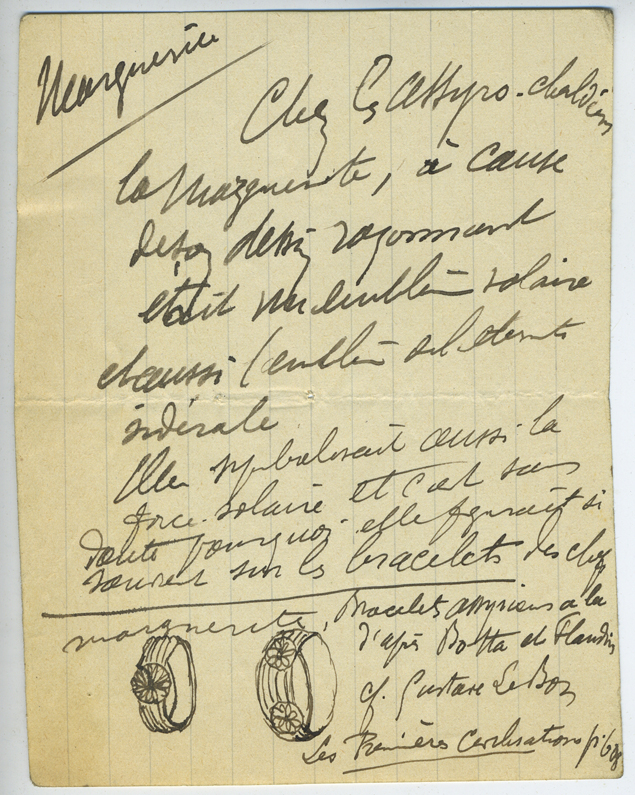 Marguerite
Chez les Assyro-chaldéens
la Marguerite, à cause
de son dessin rayonnant
était un emblème solaire
et aussi l'emblème
sidérale
Elle symbolisait aussi la
force solaire et c'est sans
doute pourquoi elle figurait si
souvent sur les bracelets des chefs
Bracelets assyriens à la
marguerite,
d'après Botta et Flandin
cf. Gustave Le Bon
Les Premières Civilisations p.